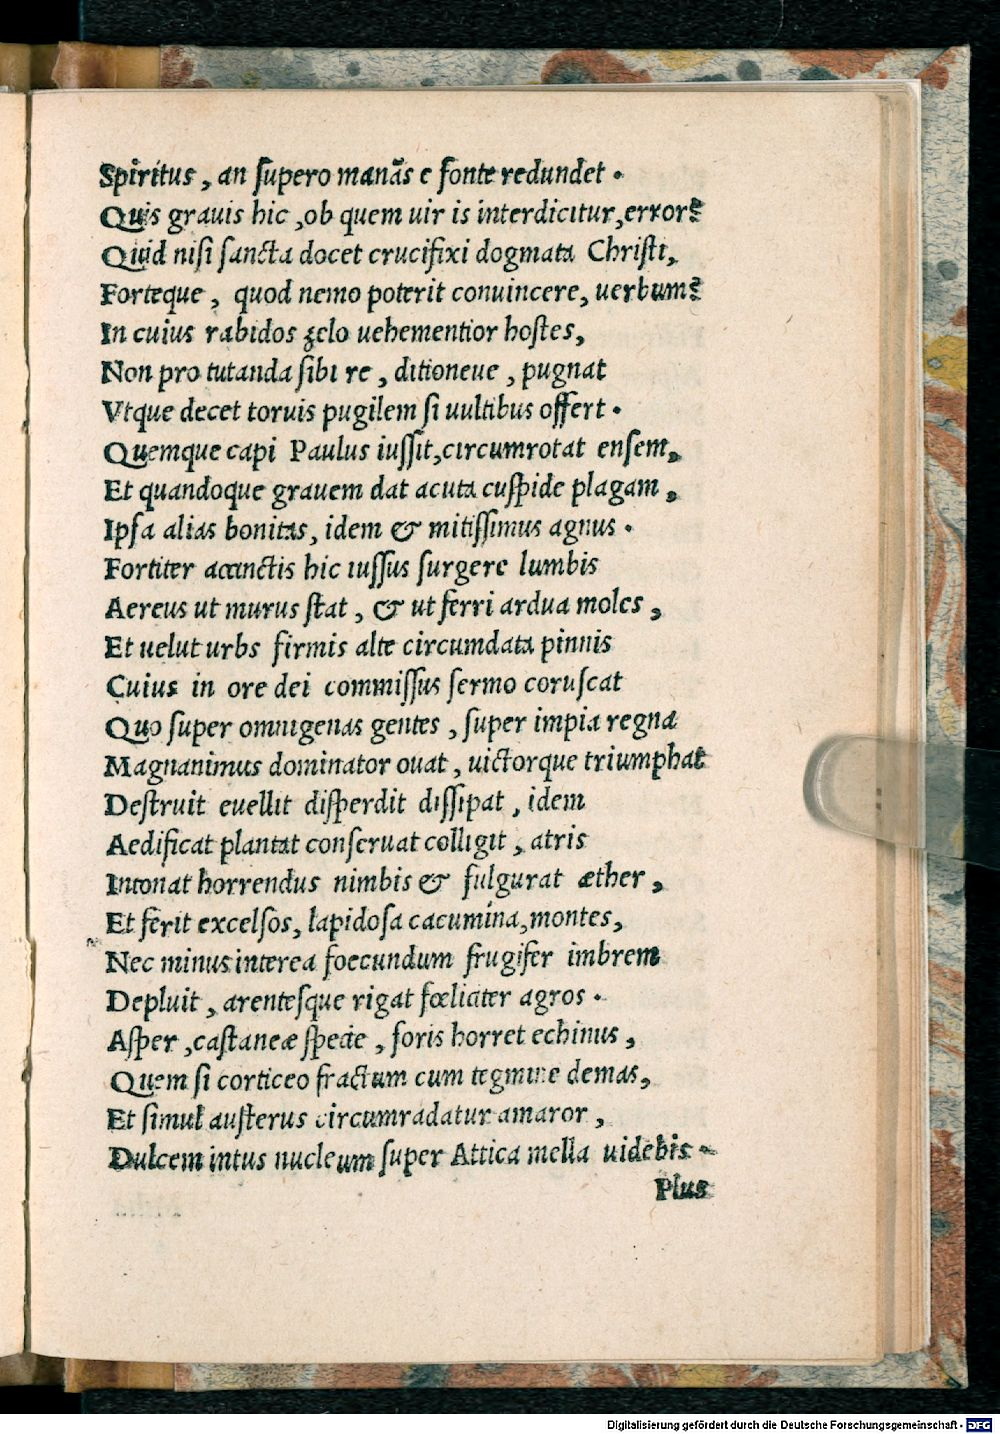 Spiritus, an supero manãs e fonte redundet.
Quis grauis hic, ob quem uir is interdicitur, error?
Quid nisi sancta docet crucifixi dogmata Christi,
Forteque, quod nemo poterit conuincere, uerbum?
In cuius rabidos zelo uehementior hostes,
Non pro tutanda sibi re, ditioneue, pugnat
Vtque decet toruis pugilem si uultibus offert.
Quemque capi Paulus iussit, circumrotat ensem,
Et quandoque grauem dat acuta cuspide plagam,
Ipsa alias bonitas, idem & mitissimus agnus.
Fortiter accinctis hic iussus surgere lumbis
Aereus ut murus stat, & ut ferri ardua moles,
Et uelut urbs firmis alte circumdata pinnis
Cuius in ore dei commissus sermo coruscat
Quo super omnigenas gentes, super impia regna
Magnanimus dominator ouat, uictorque triumphat
Destruit euellit disperdit dissipat, idem
Aedificat plantat conseruat colligit, atris
Intonat horrendus nimbis & fulgurat æther,
Et ferit excelsos, lapidosa cacumina, montes,
Nec minus interea foecundum frugifer imbrem
Depluit, arentesque rigat fœliciter agros.
Asper, castaneæ specie, foris horret echinus,
Quem si corticeo fractum cum tegmine demas,
Et simul austerus circumradatur amaror,
Dulcem intus nucleum super Attica mella uidebis.
Plus
Digitalisierung gefördert durch die Deutsche Forschungsgemeinschaft - DFG